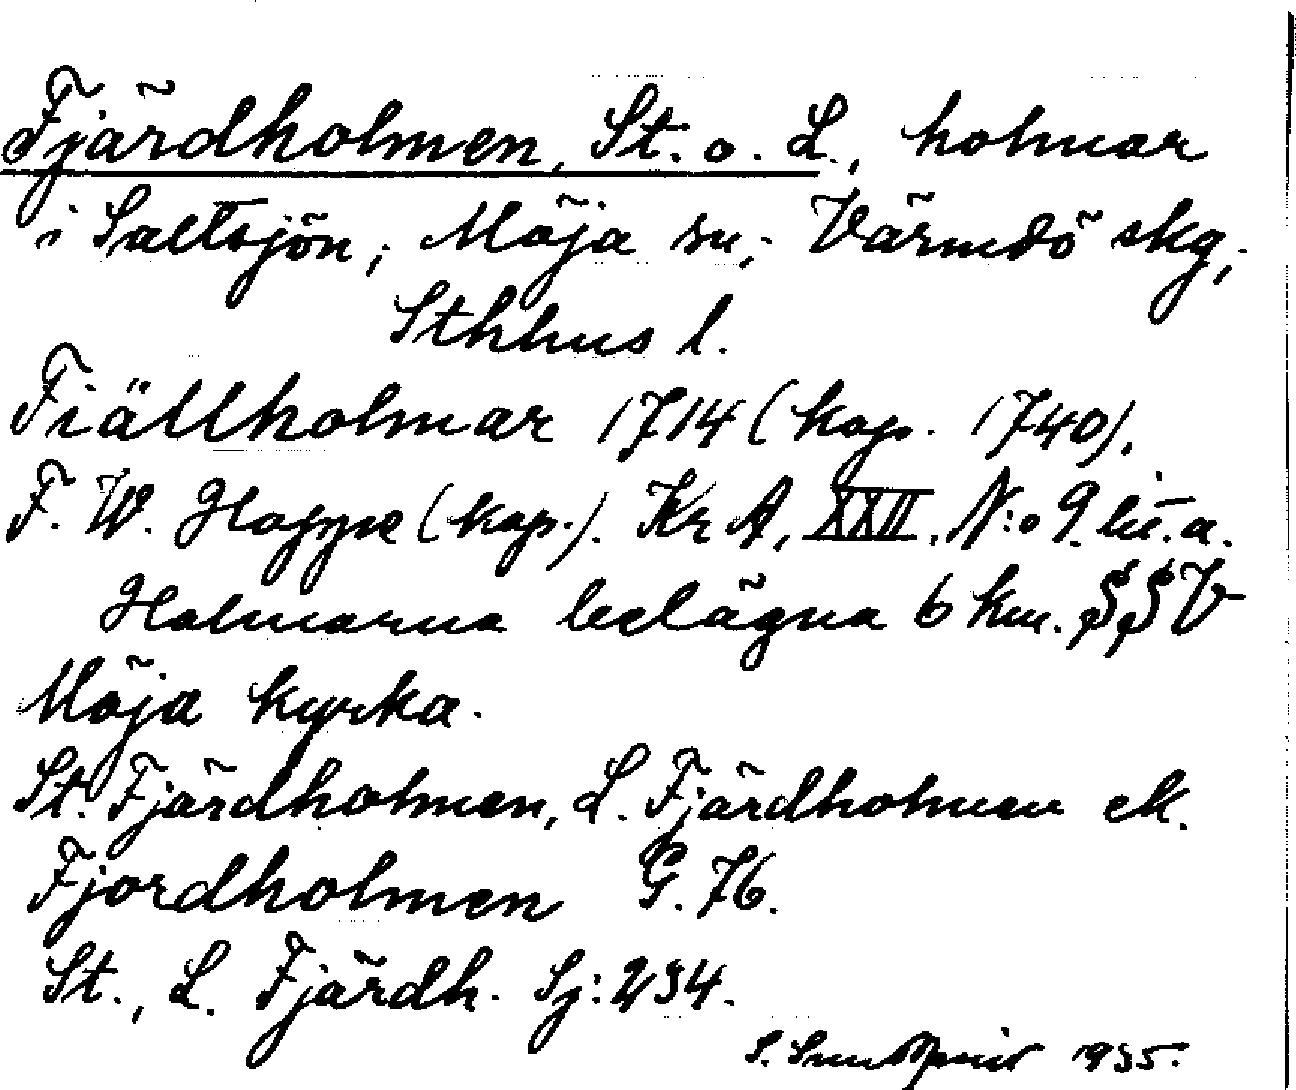 Fjärdholmen, St. o. L., holmar
i Saltsjön, Möja sn, Värmdö skg,
Sthhus l.
Fiällholmar 1714 (kop. 1740).
F. W. Hoppe (kop.). Kr A, XXII, N:o 9. lit. a.
Holmarna belägna 6 km. SSV
Möja kyrka.
St. Fjärdholmen, L. Fjärdholmen ek.
Fjordholmen G. 76.
St., L. Fjärdh. Sj: 234.
S. 1935.